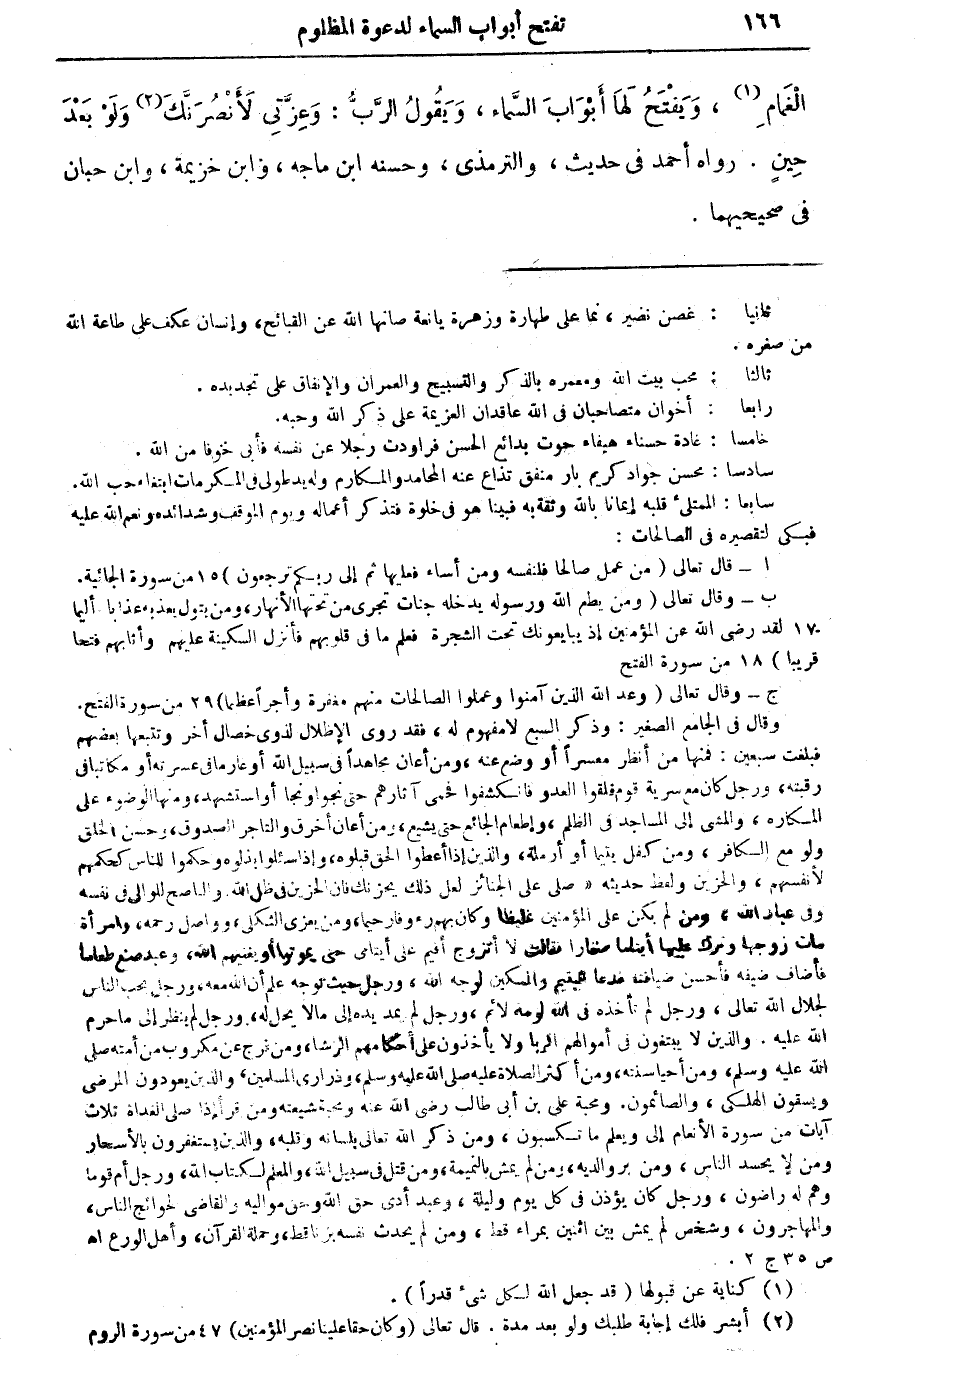 ١٦٦ تفتح أبواب السماء لدعوة المظلوم
الْغَمَامِ(١) ، وَيَفْتَحُ لَهَا أَبْوَابَ السَّمَاء ، وَيَقُولُ الرَّبُّ : وَعِزَّتِي لَأَنْصُرَنَّكَ(٢) وَلَوْ بَعْدَ
حِينٍ . رواه أحمد فى حديث ، والترمذى ، وحسنه ابن ماجه ، وابن خزيمة ، وابن حبان
فى صحيحيهما .
ثانيا : غصن نضير ، نما على طهارة وزهرة يانعة صانها الله عن القبائح، وإنسان عكف على طاعة الله
من صغره .
ثالثا : محب بيت الله ومعمره بالذكر والتسبيح والعمران والإنفاق على تجديده .
رابعا : أخوان متصاحبان فى الله عاقدان العزيمة على ذكر الله وحبه.
خامسا : غادة حسناء هيفاء حوت بدائع الحسن فراودت رجلا عن نفسه فأبى خوفا من الله .
سادسا : محسن جواد كريم بار منفق تذاع عنه المحامد والمكارم وله يد طولى فى المكرمات ابتغاء حب الله.
سابعا : الممتلئ قلبه إيمانا بالله وثقة به فبينا هو فى خلوة فتذكر أعماله ويوم الموقف وشدائده ونعم الله عليه
فبكى لتقصيره فى الصالحات :
ا ــ قال تعالى ( من عمل صالحا فلنفسه ومن أساء فعليها ثم إلى ربكم ترجعون ) ١٥ من سورة الجاثية.
ب ــ وقال تعالى ( ومن يطع الله ورسوله يدخله جنات تجرى من تحتها الأنهار، ومن يتول يعذبه عذابا أليما
١٧ لقد رضى الله عن المؤمنين إذ يبايعونك تحت الشجرة فعلم ما فى قلوبهم فأنزل السكينة عليهم وأثابهم فتحا
قريبا ) ١٨ من سورة الفتح
ج ــ وقال تعالى ( وعد الله الذين آمنوا وعملوا الصالحات منهم مغفرة وأجراً عظيما) ٢٩ من سورة الفتح.
وقال فى الجامع الصغير : وذكر السبع لا مفهوم له ، فقد روى الإظلال لذوى خصال أخر وتتبعها بعضهم
فبلغت سبعين : فمنها من أنظر معسراً أو وضع عنه ، ومن أعان مجاهداً فى سبيل الله أو غارما فى عسرته أو مكاتبا فى
رقبته، ورجل كان مع سرية قوم فلقوا العدو فانكشفوا فحمى آثارهم حتى نجوا ونجا أو استشهد، ومنها الوضوء على
المكاره ، والمشى إلى المساجد فى الظلم ، وإطعام الجائع حتى يشبع، ومن أعان أخرق والتاجر الصدوق، وحسن الخلق
ولو مع الكافر ، ومن كفل يتيما أو أرملة، والذين إذا أعطوا الحق قبلوه، وإذا سئلوا بذلوه وحكموا للناس كحكمهم
لأنفسهم ، والحزين ولفظ حديثه « صلى على الجنائز لعل ذلك يحزنك فان الحزين فى ظل الله والناصح للوالى فى نفسه
وفى عباد الله ، ومن لم يكن على المؤمنين غليظا وكان بهم رءوفا رحيما، ومن يعزى الثكلى، وواصل رحمه، وامرأة
مات زوجها وترك عليها أيتاما صغارا فقالت لا أتزوج أقيم على أيتامى حتى يموتوا أو يغنيهم الله، وعبد صنع طعاما
فأضاف ضيفه فأحسن ضيافته فدعا اليتيم والمسكين لوجه الله ، ورجل حيث توجه علم أن الله معه، ورجل يحب الناس
لجلال الله تعالى ، ورجل لم تأخذه فى الله لومة لائم ، ورجل لم يمد يده إلى مالا يحل له، ورجل لم ينظر إلى ما حرم
الله عليه . والذين لا يبتغون فى أموالهم الربا ولا يأخذون على أحكامهم الرشا، ومن فرج عن مكروب من أمته صلى
الله عليه وسلم، ومن أحيا سنته، ومن أكثر الصلاة عليه صلى الله عليه وسلم، وذرارى المسلمين، والذين يعودون المرضى
ويسقون الهلكى ، والصائمون. ومحبة على بن أبى طالب رضى الله عنه ومحبة شيعته ومن قرأ إذا صلى الغداة ثلاث
آيات من سورة الأنعام إلى ويعلم ما تكسبون ، ومن ذكر الله تعالى بلسانه وقلبه، والذين يستغفرون بالأسحار
ومن لا يحسد الناس ، ومن بر والديه، ومن لم يمش بالنميمة، ومن قتل فى سبيل الله، والمعلم لكتاب الله، ورجل أم قوما
وهم له راضون ، ورجل كان يؤذن فى كل يوم وليلة ، وعبد أدى حق الله وحق مواليه والقاضى لحوائج الناس،
والمهاجرون ، وشخص لم يمش بين اثنين بمراء قط ، ومن لم يحدث نفسه بزنا قط، وحملة القرآن، وأهل الورع اه
ص ٣٥ ج ٢ .
(١) كناية عن قبولها ( قد جعل الله لكل شىء قدراً ) .
(٢) أبشر فلك إجابة طلبك ولو بعد مدة . قال تعالى (وكان حقا علينا نصر المؤمنين) ٤٧ من سورة الروم